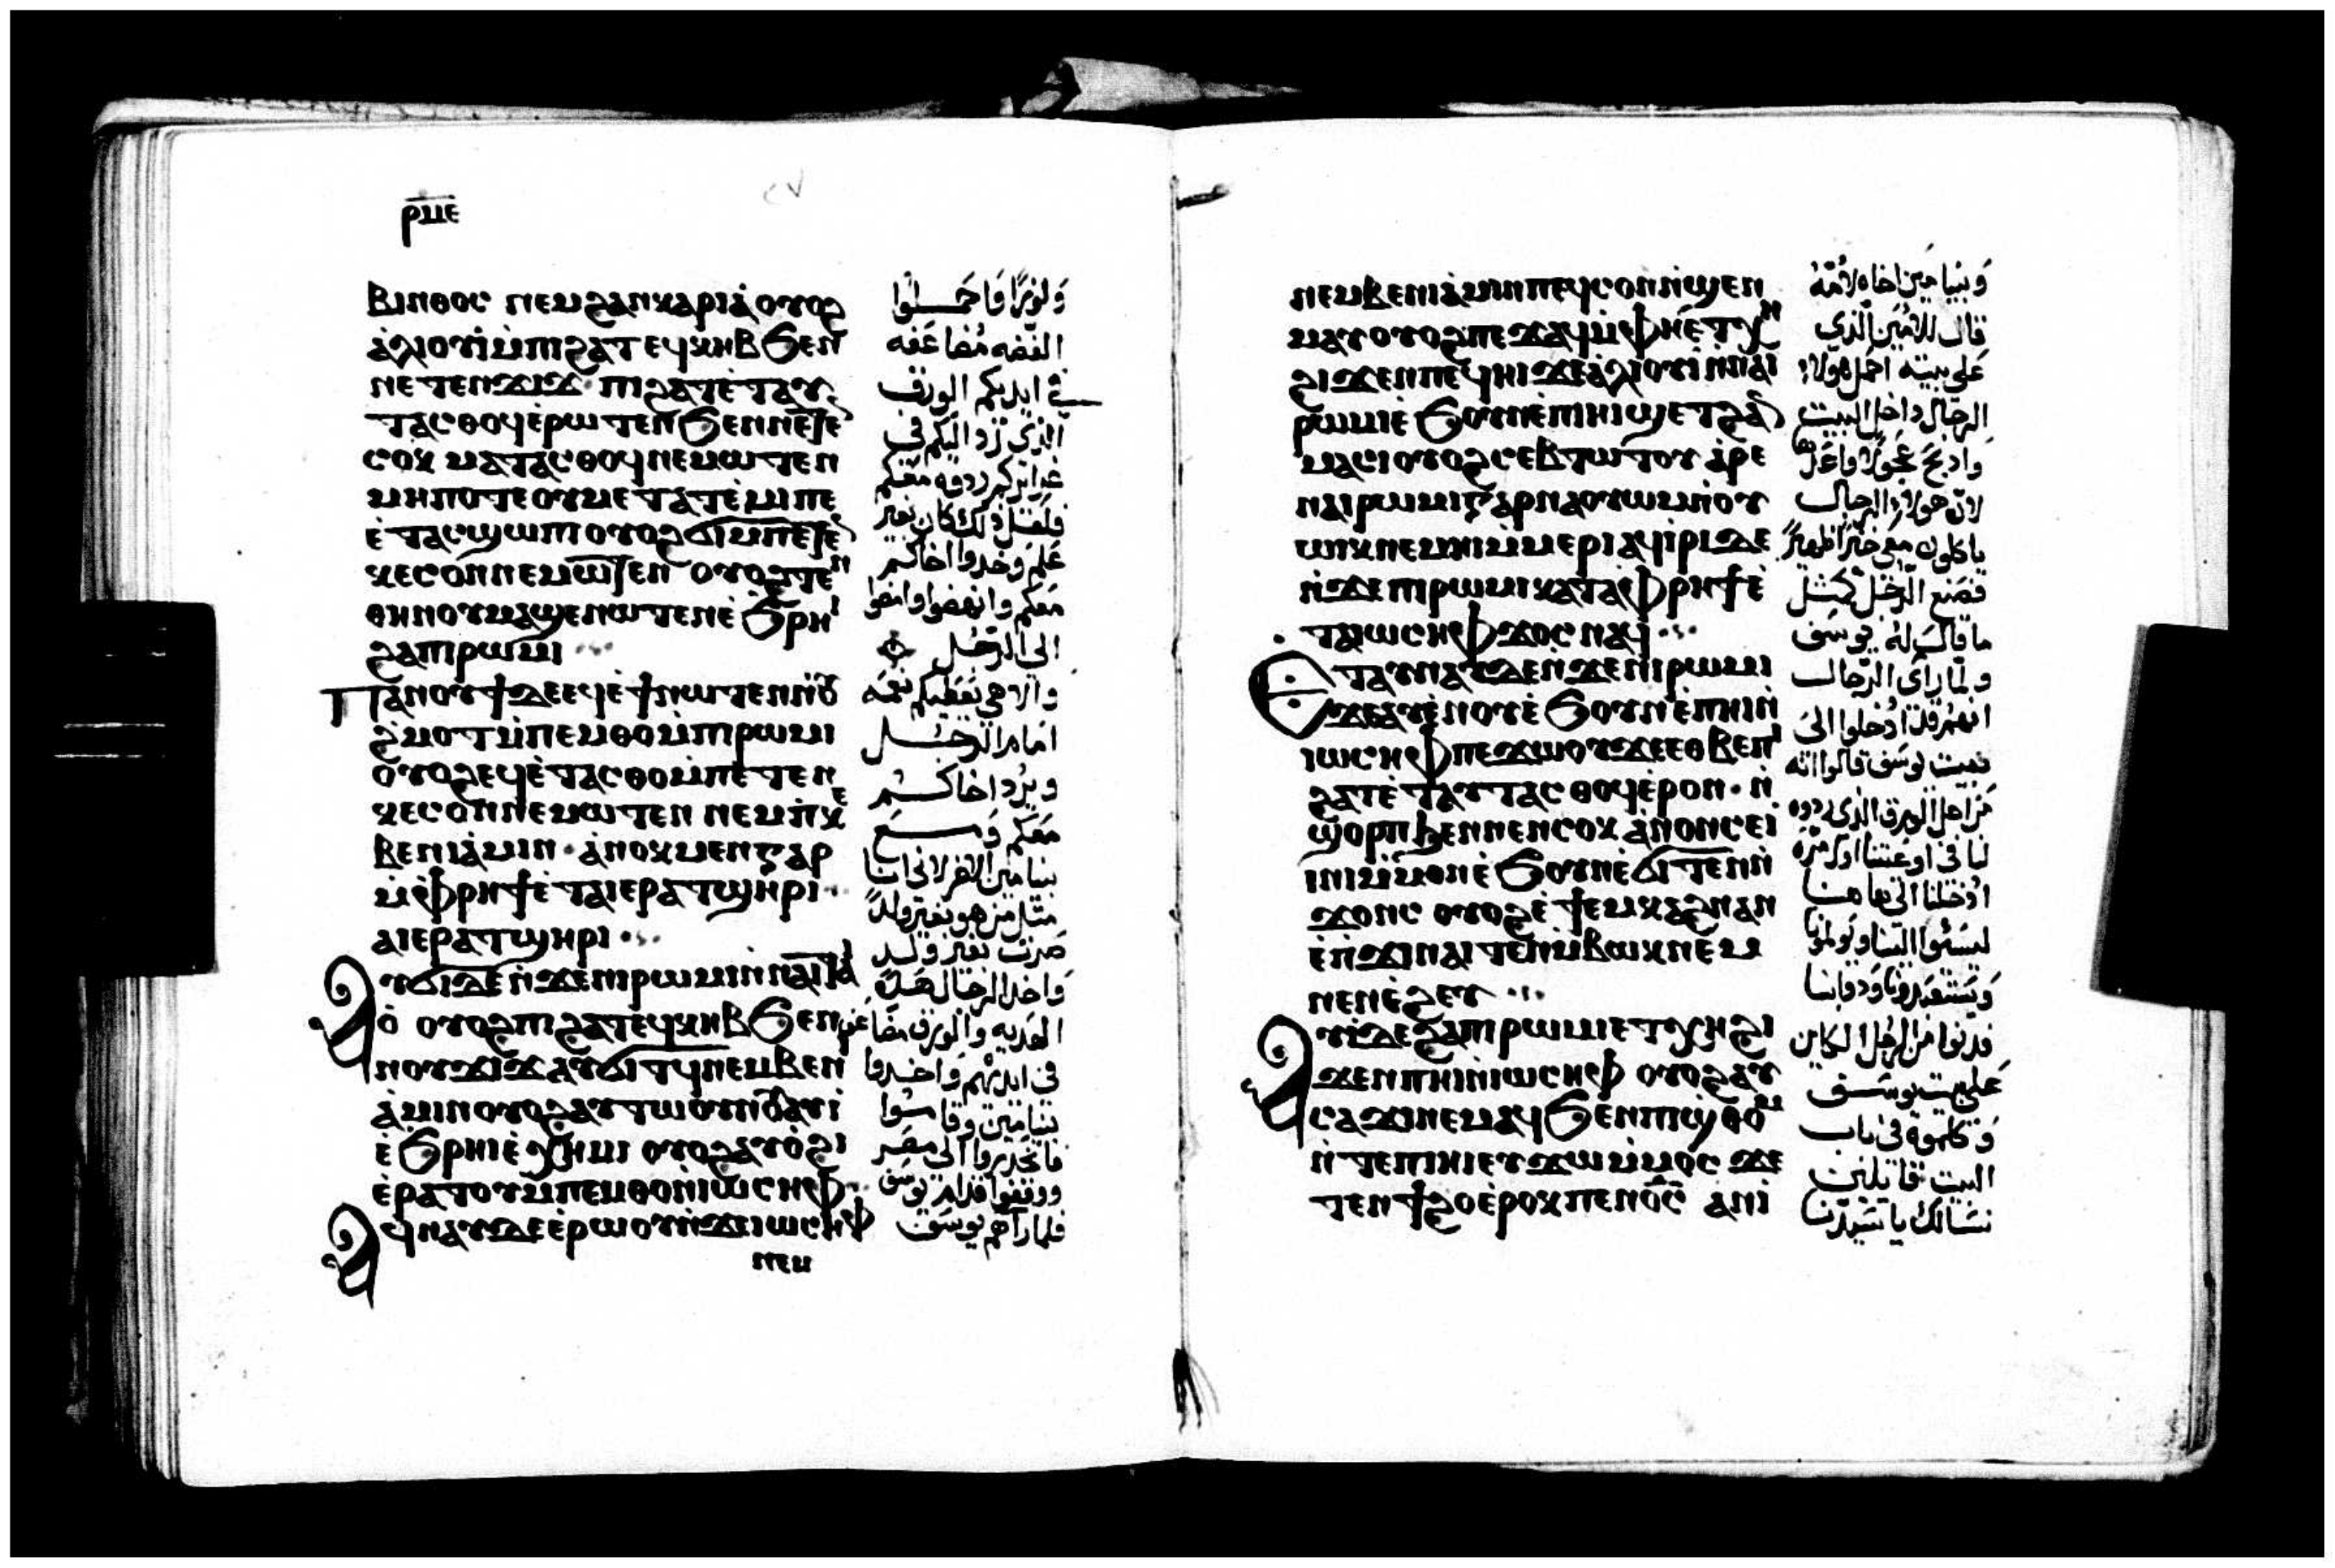 ⲣⲙⲉ
ⲃⲓⲛⲑⲟⲥ ⲛⲉⲙϩⲁⲛⲕⲁⲣⲓⲁ̀ ⲟⲩⲟϩ
ⲁ̀ⲗⲓⲟⲩⲓ̀ⲙ̀ⲡⲓϩⲁⲧ ⲉϥⲕⲏⲃ ϧⲉⲛ
ⲛⲉⲧⲉⲛϫⲓϫ ⲡⲓϩⲁⲧⲉ̀ⲧⲁⲩ
ⲧⲁⲥⲑⲟϥⲉ̀ⲣⲱⲧⲉⲛ ϧⲉⲛⲛⲉⲧⲉ
ⲥⲟⲕ ⲙⲁⲧⲁⲥⲑⲟϥⲛⲉⲙⲱⲧⲉⲛ
ⲙⲏⲡⲟⲧⲉ ⲟⲩⲙⲉⲧⲁⲧⲉ̀ⲙⲓⲡⲉ
ⲉ̀ⲧⲁⲥϣⲱⲡⲓ ⲟⲩⲟϩ ϭⲓⲙⲡⲉⲧⲉ
ⲕⲉⲥⲟⲛⲛⲉⲙⲱⲧⲉⲛ ⲟⲩⲟϩⲧⲉⲛ
ⲑⲏⲛⲟⲩⲙⲁϣⲉⲛⲱⲧⲉⲛⲉ̀ϧⲣⲏⲓ
ϩⲁⲡⲓⲣⲱⲙⲓ
ⲡⲁⲛⲟⲩϯ ⲇⲉ ⲉϥⲉ̀ϯⲛⲱⲧⲉⲛⲛ̀ⲟⲩ
ϩⲙⲟⲧ ⲙ̀ⲡⲉⲙⲑⲟⲙ̀ⲡⲓⲣⲱⲙⲓ
ⲟⲩⲟϩ ⲉϥⲉ̀ⲧⲁⲥⲑⲟⲙ̀ⲡⲉⲧⲉⲛ
ⲕⲉⲥⲟⲛⲛⲉⲙⲱⲧⲉⲛ ⲛⲉⲙⲡ̀ⲕⲉ
ⲃⲉⲛⲓⲁ̀ⲙⲓⲛ· ⲁ̀ⲛⲟⲕ ⲙⲉⲛ ⲅⲁⲣ
ⲙ̀ⲫⲣⲏϯ ⲉ̀ⲧⲁⲓⲉⲣⲁⲧϣⲏⲣⲓ
ⲁⲓⲉⲣⲁⲧϣⲏⲣⲓ
ⲁⲩϭⲓ ⲇⲉ ⲛ̀ϫⲉⲛⲓⲣⲱⲙⲓⲛ̀ⲛⲁⲓⲧⲁⲓ
ⲟ̀ ⲟⲩⲟϩ ⲡⲓϩⲁⲧⲉϥⲕⲏⲃ ϧⲉⲛ
ⲛⲟⲩϫⲓϫ ⲁⲩϭⲓⲧϥ ⲛⲉⲙⲃⲉⲛ
ⲁ̀ⲙⲓⲛ ⲟⲩⲟϩ ⲁⲩⲧⲱⲟⲩⲛⲟⲩ ⲁⲩⲓ
ⲉ̀ϧⲣⲏⲓ ⲉ̀ⲭⲏⲙⲓ ⲟⲩⲟϩ ⲁⲩⲟ̀ϩⲓ
ⲉ̀ⲣⲁⲧⲟⲩⲙ̀ⲡⲉⲙⲑⲟⲛ̀ⲓⲱⲥⲏⲫ
ⲁϥⲛⲁⲩ ⲇⲉ ⲉ̀ⲣⲱⲟⲩ ⲛ̀ϫⲉⲓⲱⲥⲏⲫ
ⲛⲉⲙ
ولوزًا فاحملوا
الفضه مضاعفه
في ايديكم الورق
الذي ترد اليكم في
غرايركم ردوه معكم
فلعل ذلك كان بغير
علم وخدوا اخاكم
معكم وانهضوا وامضوا
الى الرجل
والاهي يعطيكم نعمه
امام الرجل
ويرد اخاكم
معكم ومع
بنيامين الاخر لاني انا
مثل من هو بغير ولد
صرت بغير ولد
واخذ الرجال هذه
الهديه والورق مضاعف
في ايديهم واخدوا
بنيامين وقاموا
فانحدروا الى مصر
ووقفوا قدام يوسف
فلما رآهم يوسف
ⲛⲉⲙⲃⲉⲛⲓⲁ̀ⲙⲓⲛⲡⲉϥⲥⲟⲛⲛ̀ϣⲉⲛ
ⲙⲁⲩ ⲟⲩⲟϩ ⲡⲉϫⲁϥⲙ̀ⲫⲏⲉ̀ⲧⲭⲏ
ϩⲓϫⲉⲛⲡⲉϥⲏⲓ ϫⲉⲁ̀ⲗⲓⲟⲩⲓ̀ⲛ̀ⲛⲁⲓ
ⲣⲱⲙⲓⲉ̀ϧⲟⲩⲛⲉ̀ⲡⲓⲏⲓ ϣⲉⲧϩⲁⲛ
ⲙⲁⲥⲓ ⲟⲩⲟϩ ⲥⲉⲃⲧⲱⲧⲟⲩ ⲁ̀ⲣⲉ
ⲛⲁⲓⲣⲱⲙⲓ ⲅⲁⲣ ⲛⲁⲟⲩⲱⲙⲛ̀ⲟⲩ
ⲱⲓⲕⲛⲉⲙⲏⲓ ⲙ̀ⲙⲉⲣⲓ ⲁϥⲓ̀ⲣⲓ ⲇⲉ
ⲛ̀ϫⲉⲡⲓⲣⲱⲙⲓ ⲕⲁⲧⲁⲫⲣⲏϯ ⲉ̀
ⲧⲁⲓⲱⲥⲏⲫ ϫⲟⲥ ⲛⲁϥ
ⲉⲧⲁⲩⲛⲁⲩ ⲇⲉ ⲛ̀ϫⲉⲛⲓⲣⲱⲙⲓ
ϫⲉⲁⲩⲉ̀ⲛⲟⲩ ⲉ̀ϧⲟⲩⲛ ⲉ̀ⲡⲏⲓⲛ̀
ⲓⲱⲥⲏⲫ ⲡⲉϫⲱⲟⲩ ϫⲉⲉⲑⲃⲉⲡⲓ
ϩⲁⲧⲉ̀ⲧⲁⲩⲧⲁⲥⲑⲟϥⲉ̀ⲣⲟⲛ· ⲛ̀
ϣⲟⲣⲡ ϧⲉⲛⲛⲉⲛⲥⲟⲕ ⲁ̀ⲛⲟⲛ ⲥⲉⲓ̀
ⲛⲓⲙ̀ⲙⲟⲛⲉ̀ϧⲟⲩⲛ ⲉ̀ϭⲓⲧⲉⲛⲛ̀
ϫⲟⲛⲥ ⲟⲩⲟϩ ⲉ̀ϯⲉⲙⲕⲁϩⲛⲁⲛ
ⲉ̀ⲛ̀ϫⲓⲛⲁⲓⲧⲉⲛⲙ̀ⲃⲱⲕ ⲛⲉⲙ
ⲛⲉⲛⲉ̀ϩⲉⲩ
ⲁⲩⲓ̀ ⲇⲉ ϩⲁⲡⲓⲣⲱⲙⲓ ⲉⲧⲭⲏ ϩⲓ
ϫⲉⲛⲡⲏⲓⲛ̀ⲓⲱⲥⲏⲫ ⲟⲩⲟϩ ⲁⲩ
ⲥⲁϫⲓⲛⲉⲙⲁϥ ϧⲉⲛⲡⲓϣⲑⲟⲙ
ⲛ̀ⲧⲉⲡⲓⲏⲓ ⲉⲩϫⲱⲙ̀ⲙⲟⲥ ϫⲉ
ⲧⲉⲛϯϩⲟ ⲉ̀ⲣⲟⲕ ⲡⲉⲛⲟ̅ⲥ̅ ⲁⲛⲓ̀
وبنيامين اخاه لامه
قال للامين الذي
على بيته ادخل هولاء
الرجال داخل البيت
واذبح عجولًا واعد
لان هولاء الرجال
ياكلون معي خبزًا ظهيرً
فصنع الرجل كمثل
ما قال له يوسف
ولما راى الرجال
انهم قد ادخلوا الى
بيت يوسف قالوا انه
من اجل الورق الذي ردوه
لنا في اوعيتنا اول مرة
ادخلنا الى هاهنا
وحميرنا ودوابنا
فدنوا من الرجل الكاين
على بيت يوسف
وكلموه في باب
البيت قايلين
نسالك يا سيدنا